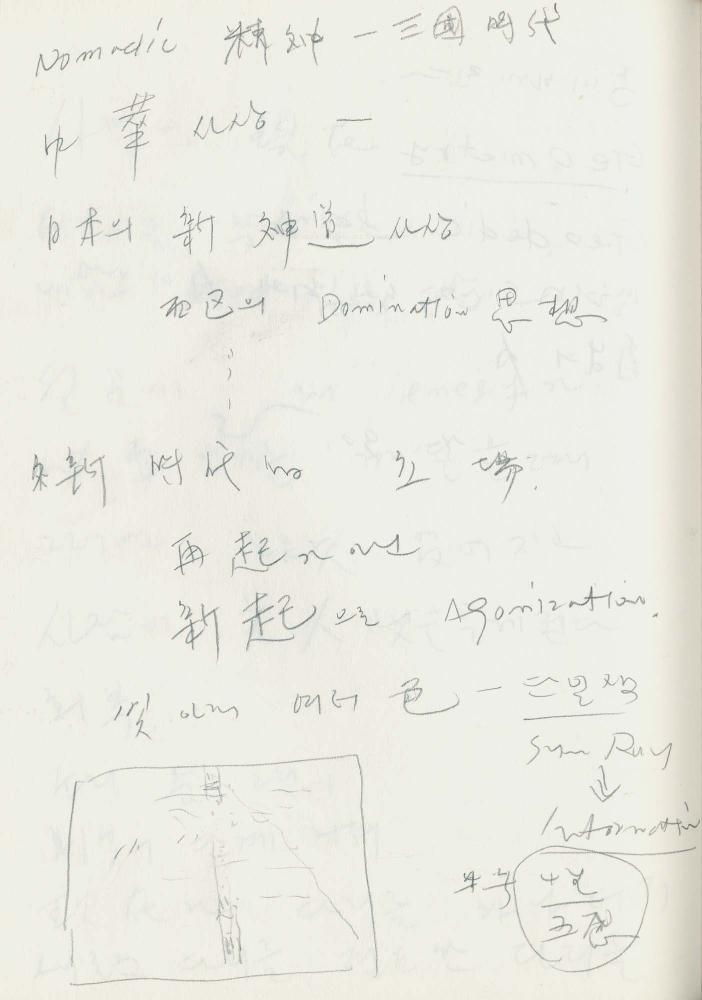 Nomadic 精神 — 三國時代
中華 사상 —
日本의 新 神道 사상
西区의 Domination 思想
新 時代의 立場.
再起가 아닌
新起으로 Agonization.
빛 아래 여러 色 —
Sun Ray
⇓
Information